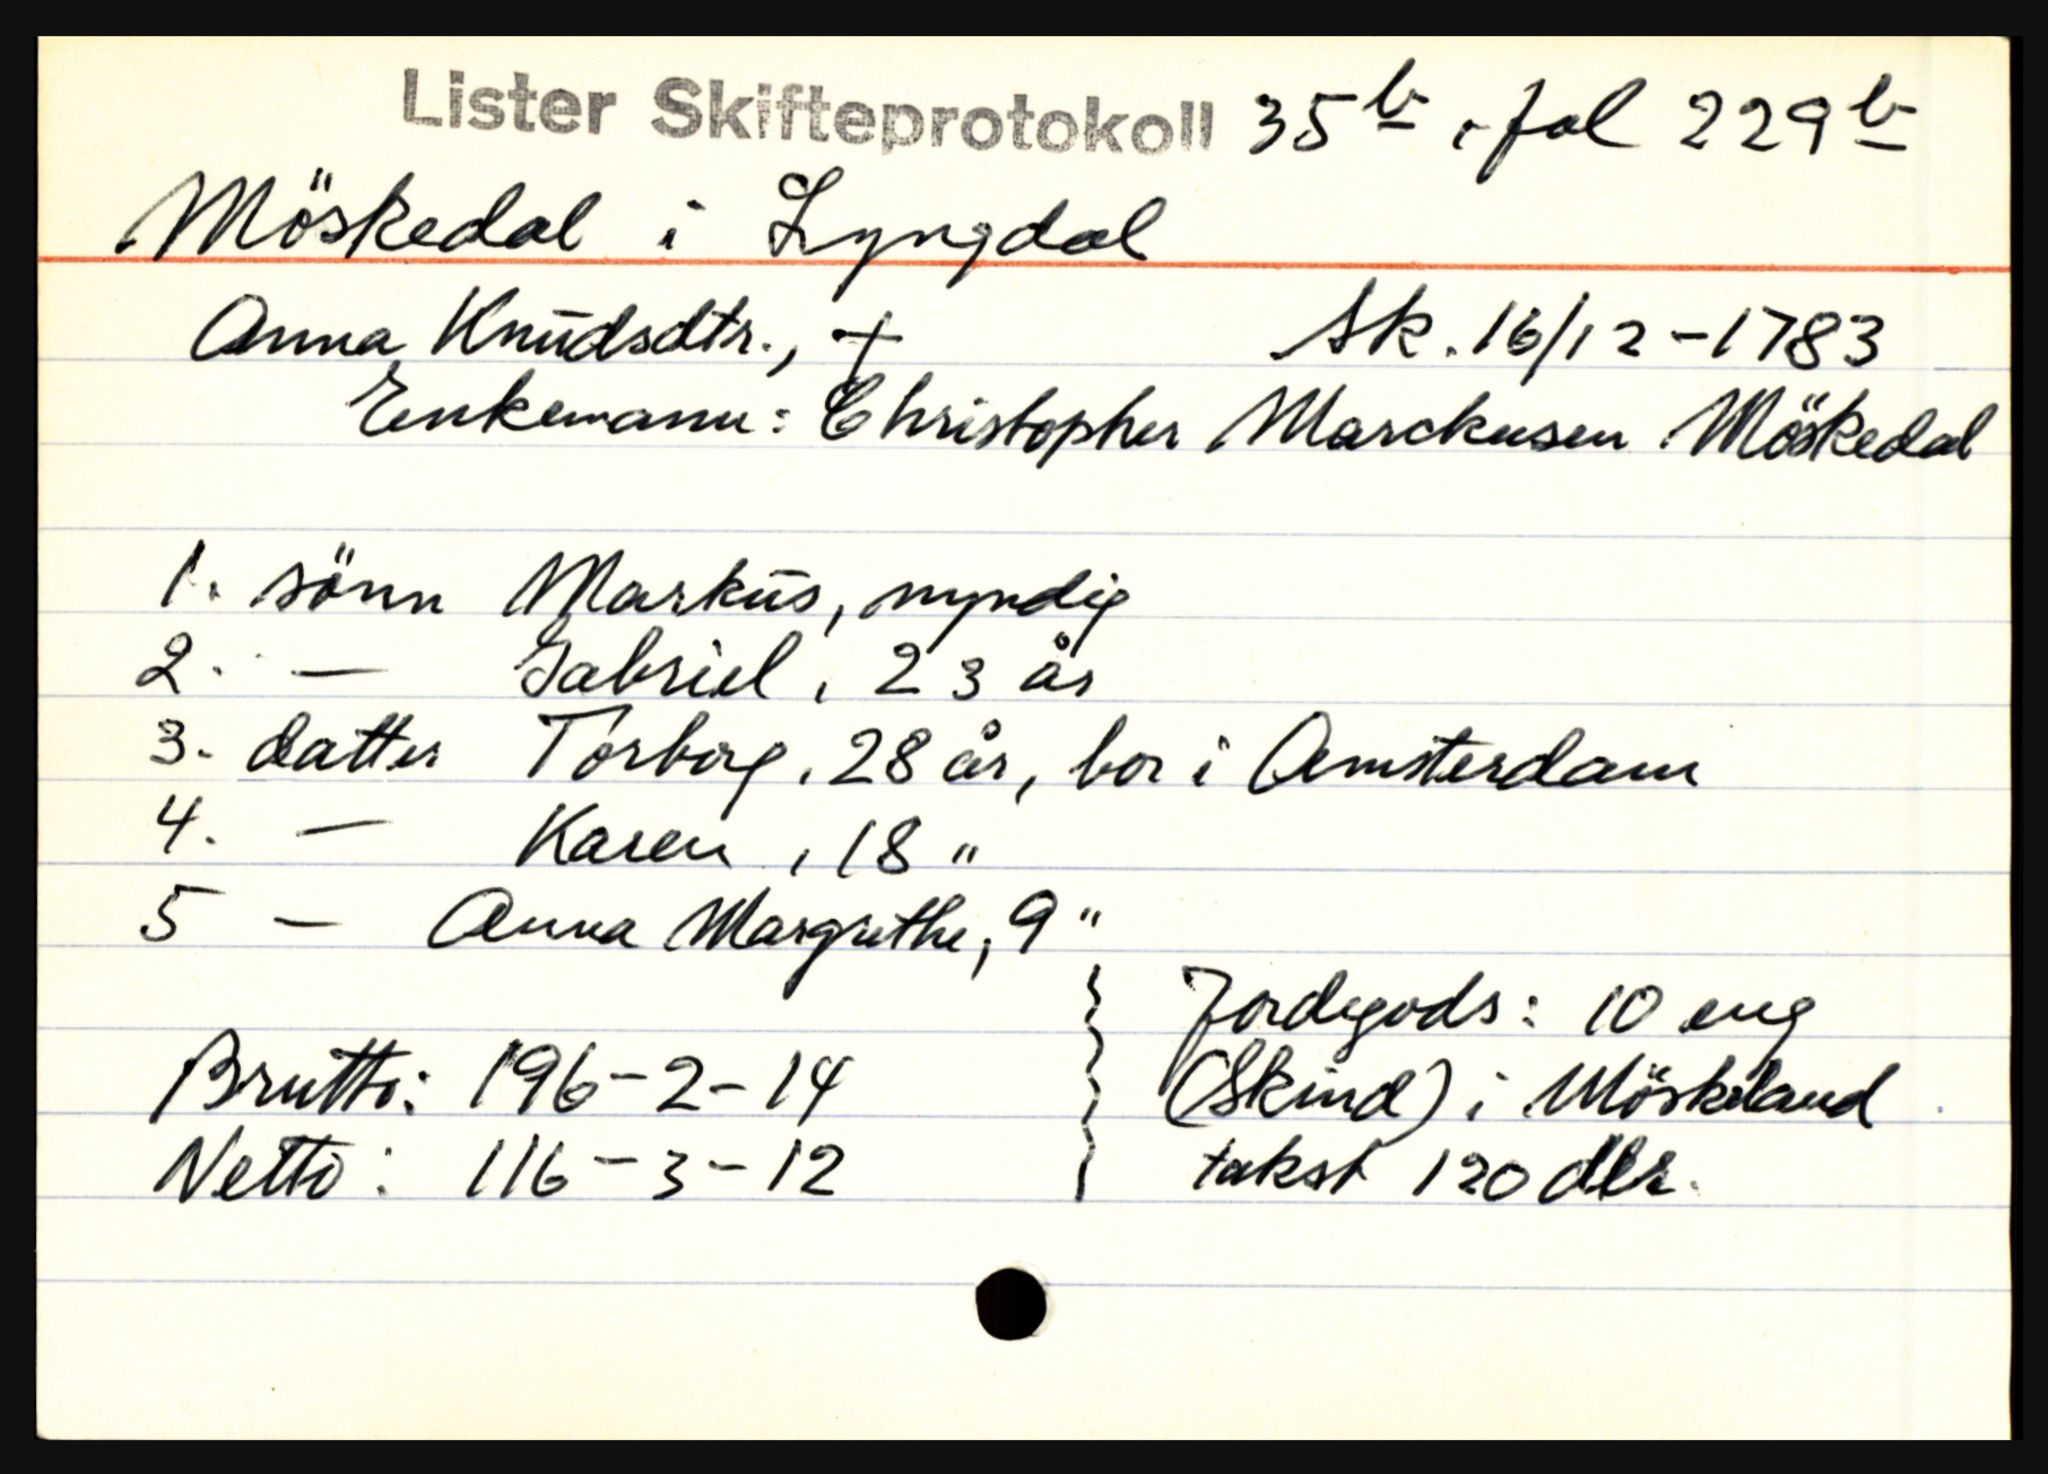 Lister Skifteprotokoll 35b, fol 229b
Möskedal i Lyngdal
Anna Knudsdtr., + Sk. 16/12-1783
Enkemann: Christopher Marckusen Möskedal
1. sönn Markus, myndig
2. — Gabriel, 23 år
3. datter Torborg, 28 år, bor i Amsterdam
4. — Karen, 18 "
5 — Anna Margrethe, 9 "
Jordegods: 10 eng
Brutto: 196-2-14 (Skind) i Möskeland
Netto: 116-3-12 takst 120 dlr.